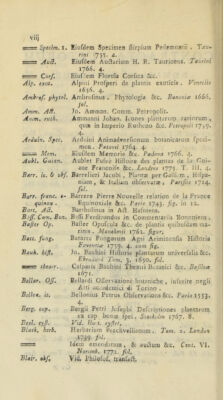 viij
— Specim. 1. Ejusdem Specimen stirpium Pedemontii. Taurini 1755. 4.
— Auct. Ejusdem Auctarium H. R. Taurionsi. Taurini
1766. 4.
— Cors. Ejusdem Florula Corsica &c.
Alp. exot. Alpini Prosperi de plantis exoticis. Venetiis
1656. 4.
Ambros. phytol. Ambrosinus. Phytologia &c. Bononiæ 1666.
fol.
Amm. Act. N. Amman. Comm. Petropolit.
Amm. ruth. Ammanni Johan. Icones plantarum rariorum,
quæ in Imperio Rutheno &c. Petropoli 1739.
4.
Arduin. Spec. Arduini Animadversionum botanicarum Speci-
men. Patavii 1764. 4.
— Mem. Ejusdem Memorie &c. Padova 1766. 4.
Aubl. Guian. Aublet Fusée Histoire des plantes de la Gui-
ane Françoise &c. Londres 1775. T. III. 4.
Barr. ic. & obs. Barrelieri Jacobi, Plantæ per Galliam, Hispa-
niam, & Italiam observatæ, Parisiis 1714.
fol.
Barr. franc. e- Barrere Pierre Nouvelle relation de la France
quinox. Equinoxiale &c. Paris 1743. fig. in 12.
Bart. Act. Bartholinus in Act. Hafniens.
Bass. Com. Bon. Bassi Ferdinandus in Commentariis Bononiens.
Baster Op. Baster Opuscula &c. de plantis quibusdam ma-
rinis. Harlemi 1761. figur.
Batt. fung. Battarra Fungorum Agri Ariminensis Historia
Faventiæ 1759. 4. cum fig.
Bauh. hist. Jo. Bauhini Historia plantarum universalis &c.
Ebroduni Tom. 3. 1650. fol.
— theatr. Caspari Bauhini Theatri Botanici &c. Basileæ
1671.
Bellar. Oss. Bellardi Osservazioni botaniche, inserite negli
Atti accademici di Torino.
Bellon. it. Bellonius Petrus Observations &c. Paris 1553.
4.
Berg. cap. Bergii Petri Josephi Descriptiones plantarum
ex cap. bonæ spei. Stockolm 1767. 8.
Besl. eyst. Vid. Hort. eystet.
Black. herb. Herbarium Blackvellianum. Tom. 2. London
1739. fol.
— Idem emendatum, & auctum &c. Cent. VI.
Norimb. 1771. fol.
Blair. obs. Vid. Philosof. transact.